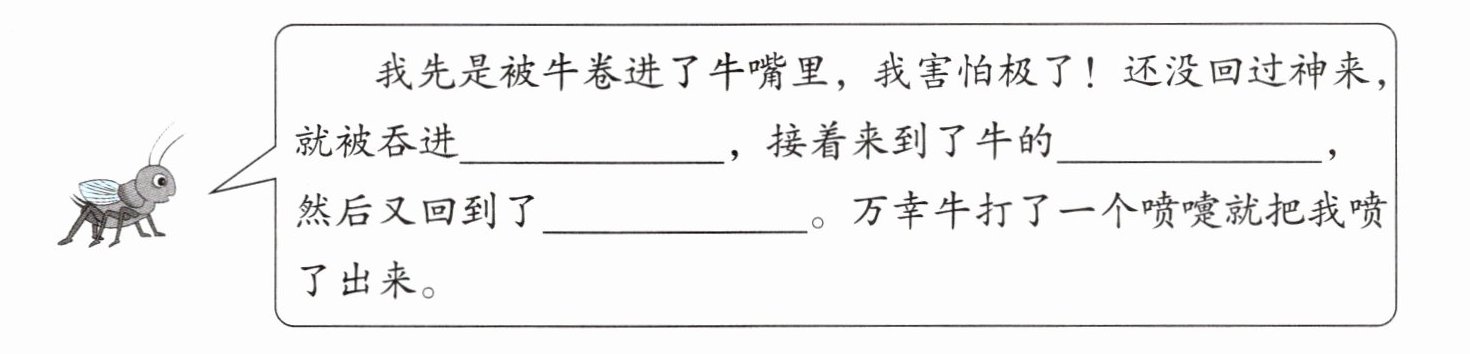 我先是被牛卷进了牛嘴里，我害怕极了！还没回过神来，
就被吞进____________，接着来到了牛的____________，
然后又回到了____________。万幸牛打了一个喷嚏就把我喷
了出来。